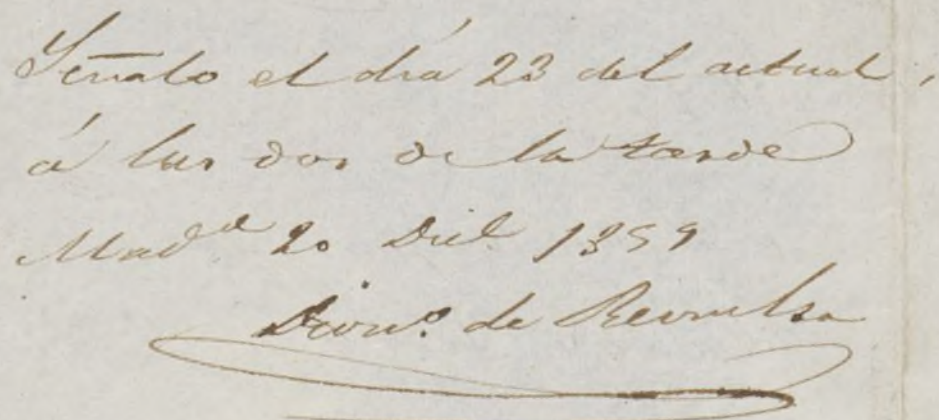 Señalo el día 23 del actual,
á las dos de la tarde
Mad.d 20 Dic.e 1859
Dion.o de Revuelta